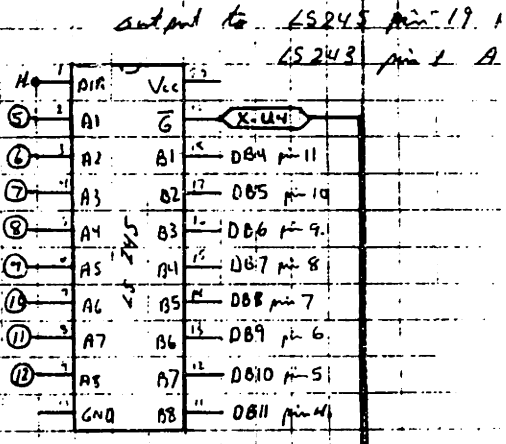 output to LS245 pin 19
LS243 pin 1 A
H 1 DIR VCC
5 2 A1 G X-U4
6 3 A2 B1 18 DB4 pin 11
7 4 A3 B2 17 DB5 pin 10
8 A4 B3 DB6 pin 9
9 A5 B4 15 DB7 pin 8
10 A6 B5 14 DB8 pin 7
11 8 A7 B6 13 DB9 pin 6
12 9 A8 B7 12 DB10 pin 5
GND B8 11 DB11 pin 4
LS 245